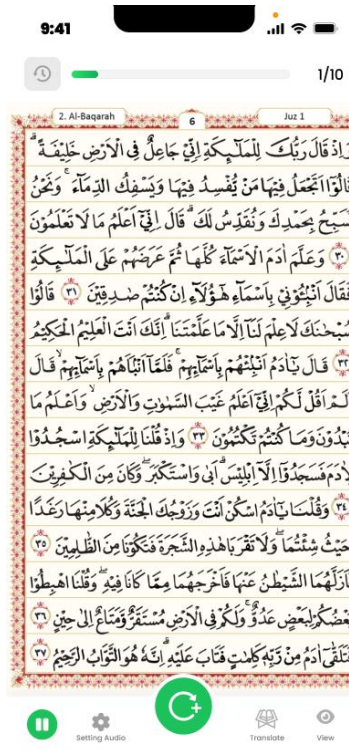 9:41
1/10
2. Al-Baqarah
6
Juz 1
وَاِذْ قَالَ رَبُّكَ لِلْمَلٰۤىِٕكَةِ اِنِّيْ جَاعِلٌ فِى الْاَرْضِ خَلِيْفَةً ۗ
قَالُوْٓا اَتَجْعَلُ فِيْهَا مَنْ يُّفْسِدُ فِيْهَا وَيَسْفِكُ الدِّمَاۤءَ ۚ وَنَحْنُ
نُسَبِّحُ بِحَمْدِكَ وَنُقَدِّسُ لَكَ ۗ قَالَ اِنِّيْٓ اَعْلَمُ مَا لَا تَعْلَمُوْنَ
٣٠ وَعَلَّمَ اٰدَمَ الْاَسْمَاۤءَ كُلَّهَا ثُمَّ عَرَضَهُمْ عَلَى الْمَلٰۤىِٕكَةِ
فَقَالَ اَنْۢبِـُٔوْنِيْ بِاَسْمَاۤءِ هٰٓؤُلَاۤءِ اِنْ كُنْتُمْ صٰدِقِيْنَ ٣١ قَالُوْا
سُبْحٰنَكَ لَا عِلْمَ لَنَآ اِلَّا مَا عَلَّمْتَنَا ۗ اِنَّكَ اَنْتَ الْعَلِيْمُ الْحَكِيْمُ
٣٢ قَالَ يٰٓاٰدَمُ اَنْۢبِئْهُمْ بِاَسْمَاۤىِٕهِمْ ۚ فَلَمَّآ اَنْۢبَاَهُمْ بِاَسْمَاۤىِٕهِمْۙ قَالَ
اَلَمْ اَقُلْ لَّكُمْ اِنِّيْٓ اَعْلَمُ غَيْبَ السَّمٰوٰتِ وَالْاَرْضِۙ وَاَعْلَمُ مَا
تُبْدُوْنَ وَمَا كُنْتُمْ تَكْتُمُوْنَ ٣٣ وَاِذْ قُلْنَا لِلْمَلٰۤىِٕكَةِ اسْجُدُوْا
لِاٰدَمَ فَسَجَدُوْٓا اِلَّآ اِبْلِيْسَۗ اَبٰى وَاسْتَكْبَرَۖ وَكَانَ مِنَ الْكٰفِرِيْنَ
٣٤ وَقُلْنَا يٰٓاٰدَمُ اسْكُنْ اَنْتَ وَزَوْجُكَ الْجَنَّةَ وَكُلَا مِنْهَا رَغَدًا
حَيْثُ شِئْتُمَاۖ وَلَا تَقْرَبَا هٰذِهِ الشَّجَرَةَ فَتَكُوْنَا مِنَ الظّٰلِمِيْنَ ٣٥
فَاَزَلَّهُمَا الشَّيْطٰنُ عَنْهَا فَاَخْرَجَهُمَا مِمَّا كَانَا فِيْهِۖ وَقُلْنَا اهْبِطُوْا
بَعْضُكُمْ لِبَعْضٍ عَدُوٌّ ۚ وَلَكُمْ فِى الْاَرْضِ مُسْتَقَرٌّ وَّمَتَاعٌ اِلٰى حِيْنٍ ٣٦
فَتَلَقّٰٓى اٰدَمُ مِنْ رَّبِّهٖ كَلِمٰتٍ فَتَابَ عَلَيْهِ ۗ اِنَّهٗ هُوَ التَّوَّابُ الرَّحِيْمُ ٣٧
Setting Audio
Translate
View